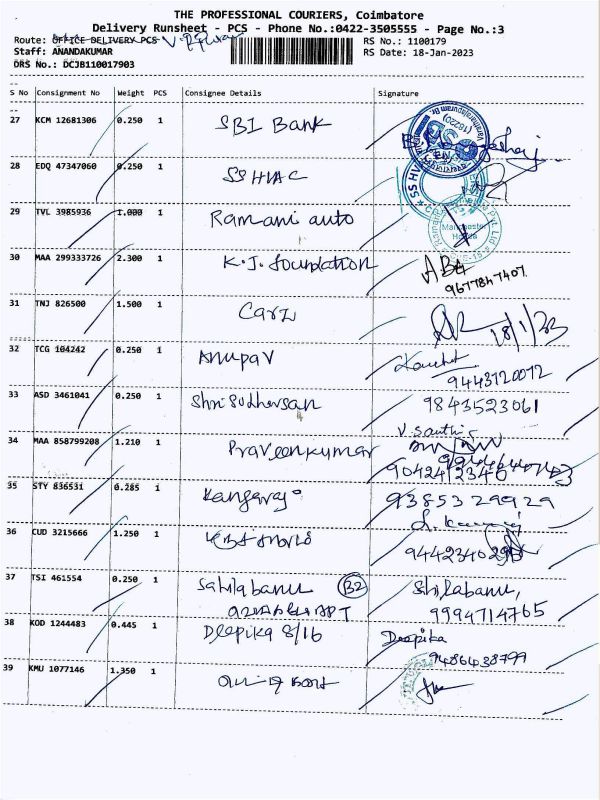 THE PROFESSIONAL COURIERS, Coimbatore
Delivery Runsheet - PCS - Phone No.:0422-3505555 - Page No.:3
Route: OFFICE DELIVERY PCS
RS No.: 1100179
Staff: ANANDAKUMAR
RS Date: 18-Jan-2023
DRS No.: DCJB110017903
S No Consignment No Weight PCS Consignee Details Signature
27 KCM 12681306 0.250 1 SBI Bank
28 EDQ 47347060 0.250 1 SS HVAC
29 TVL 3985936 1.000 1 Ramani auto
30 MAA 299333726 2.300 1 K.J. foundation ABA
9677847407
31 TNJ 826500 1.500 1 Carz 18/1/23
32 TCG 104242 0.250 1 Anupav
9443120072
33 ASD 3461041 0.250 1 Shri Sudharsan 9843523061
V. Santhi
34 MAA 858799208 1.210 1 Praveenkumar
9042412340
35 STY 836531 0.285 1 Kangaraj 9385329929
36 CUD 3215666 1.250 1
37 TSI 461554 0.250 1 Sahilabanu B2 Shilabanu,
9994714765
38 KOD 1244483 0.445 1 Deepika 8/16 Deepika
9486438799
39 KMU 1077146 1.350 1